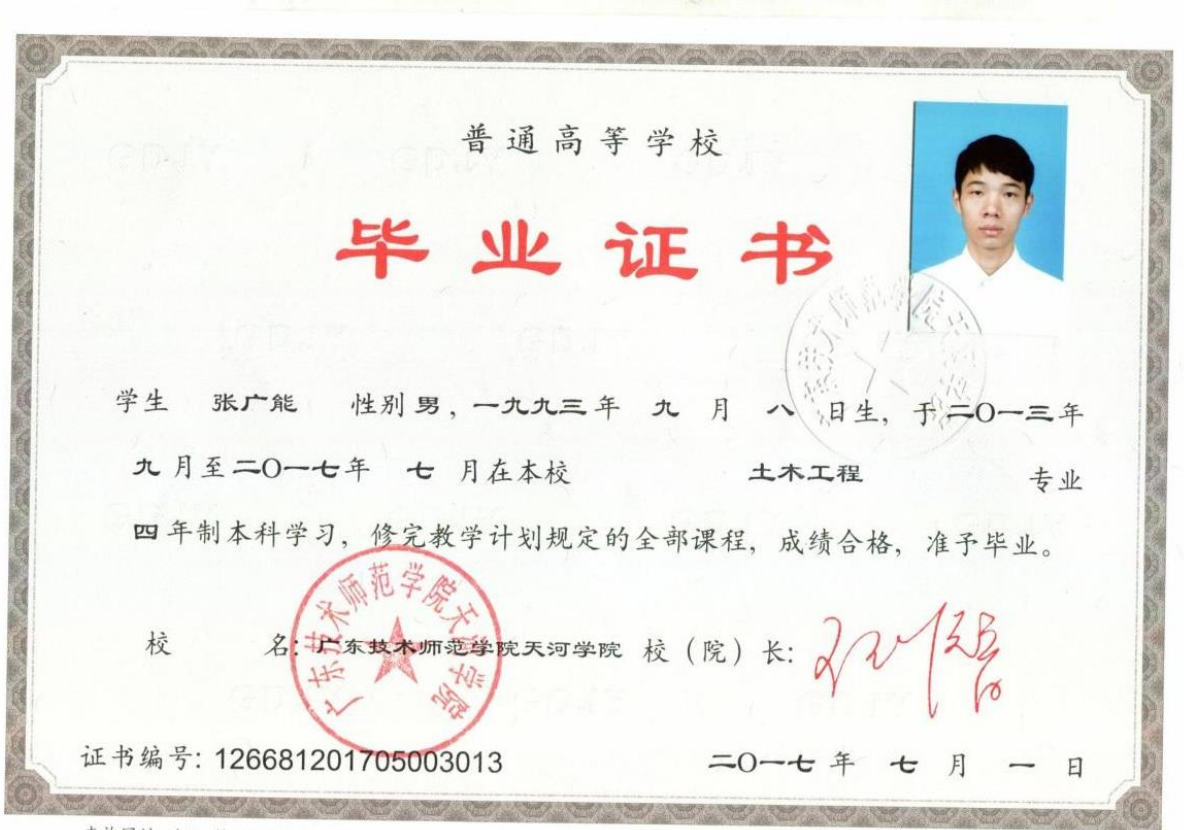 普通高等学校
毕业证书
学生 张广能 性别 男，一九九三年 九 月 八 日生，于二O一三年
九月至二O一七年 七 月在本校 土木工程 专业
四年制本科学习，修完教学计划规定的全部课程，成绩合格，准予毕业。
校 名：广东技术师范学院天河学院 校（院）长：
广东技术师范学院天河学院
证书编号：126681201705003013 二O一七年 七 月 一 日